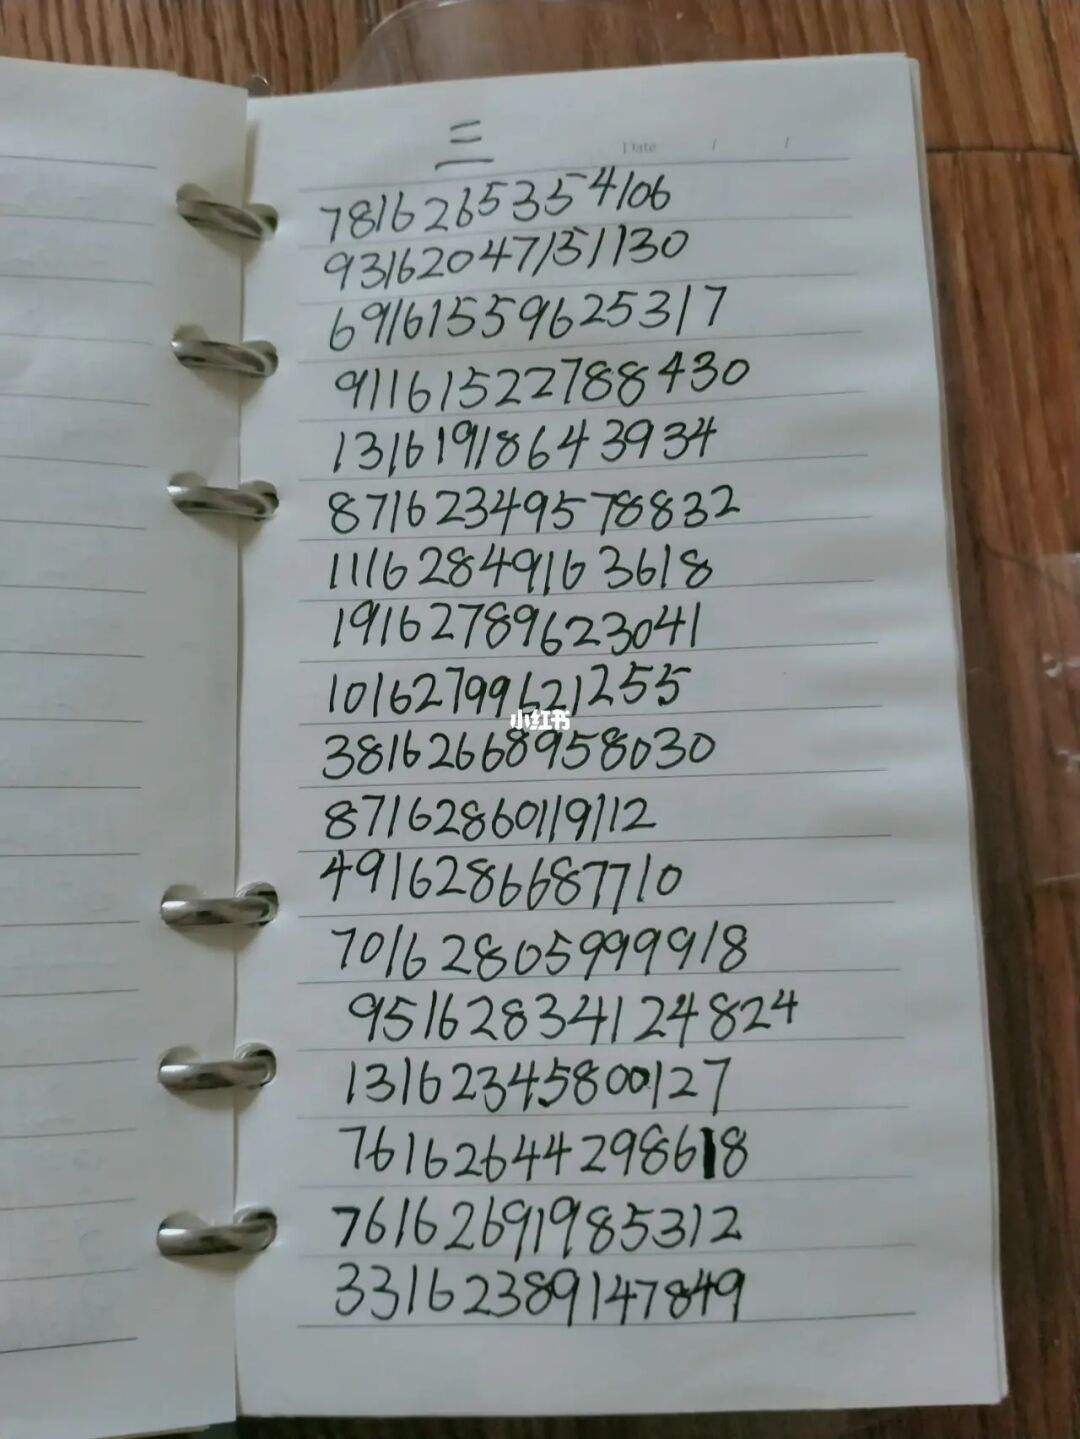 三
Date / /
7816265354106
93162047151130
691615559625317
911615227788430
1316191864 3934
87162349578832
111628491636 18
19162789623041
10162799621255
38162668958030
87162860119112
49162866877 10
701628059999 18
95162834124824
13162345800127
76162644298618
76162691985312
33162389147849
小红书